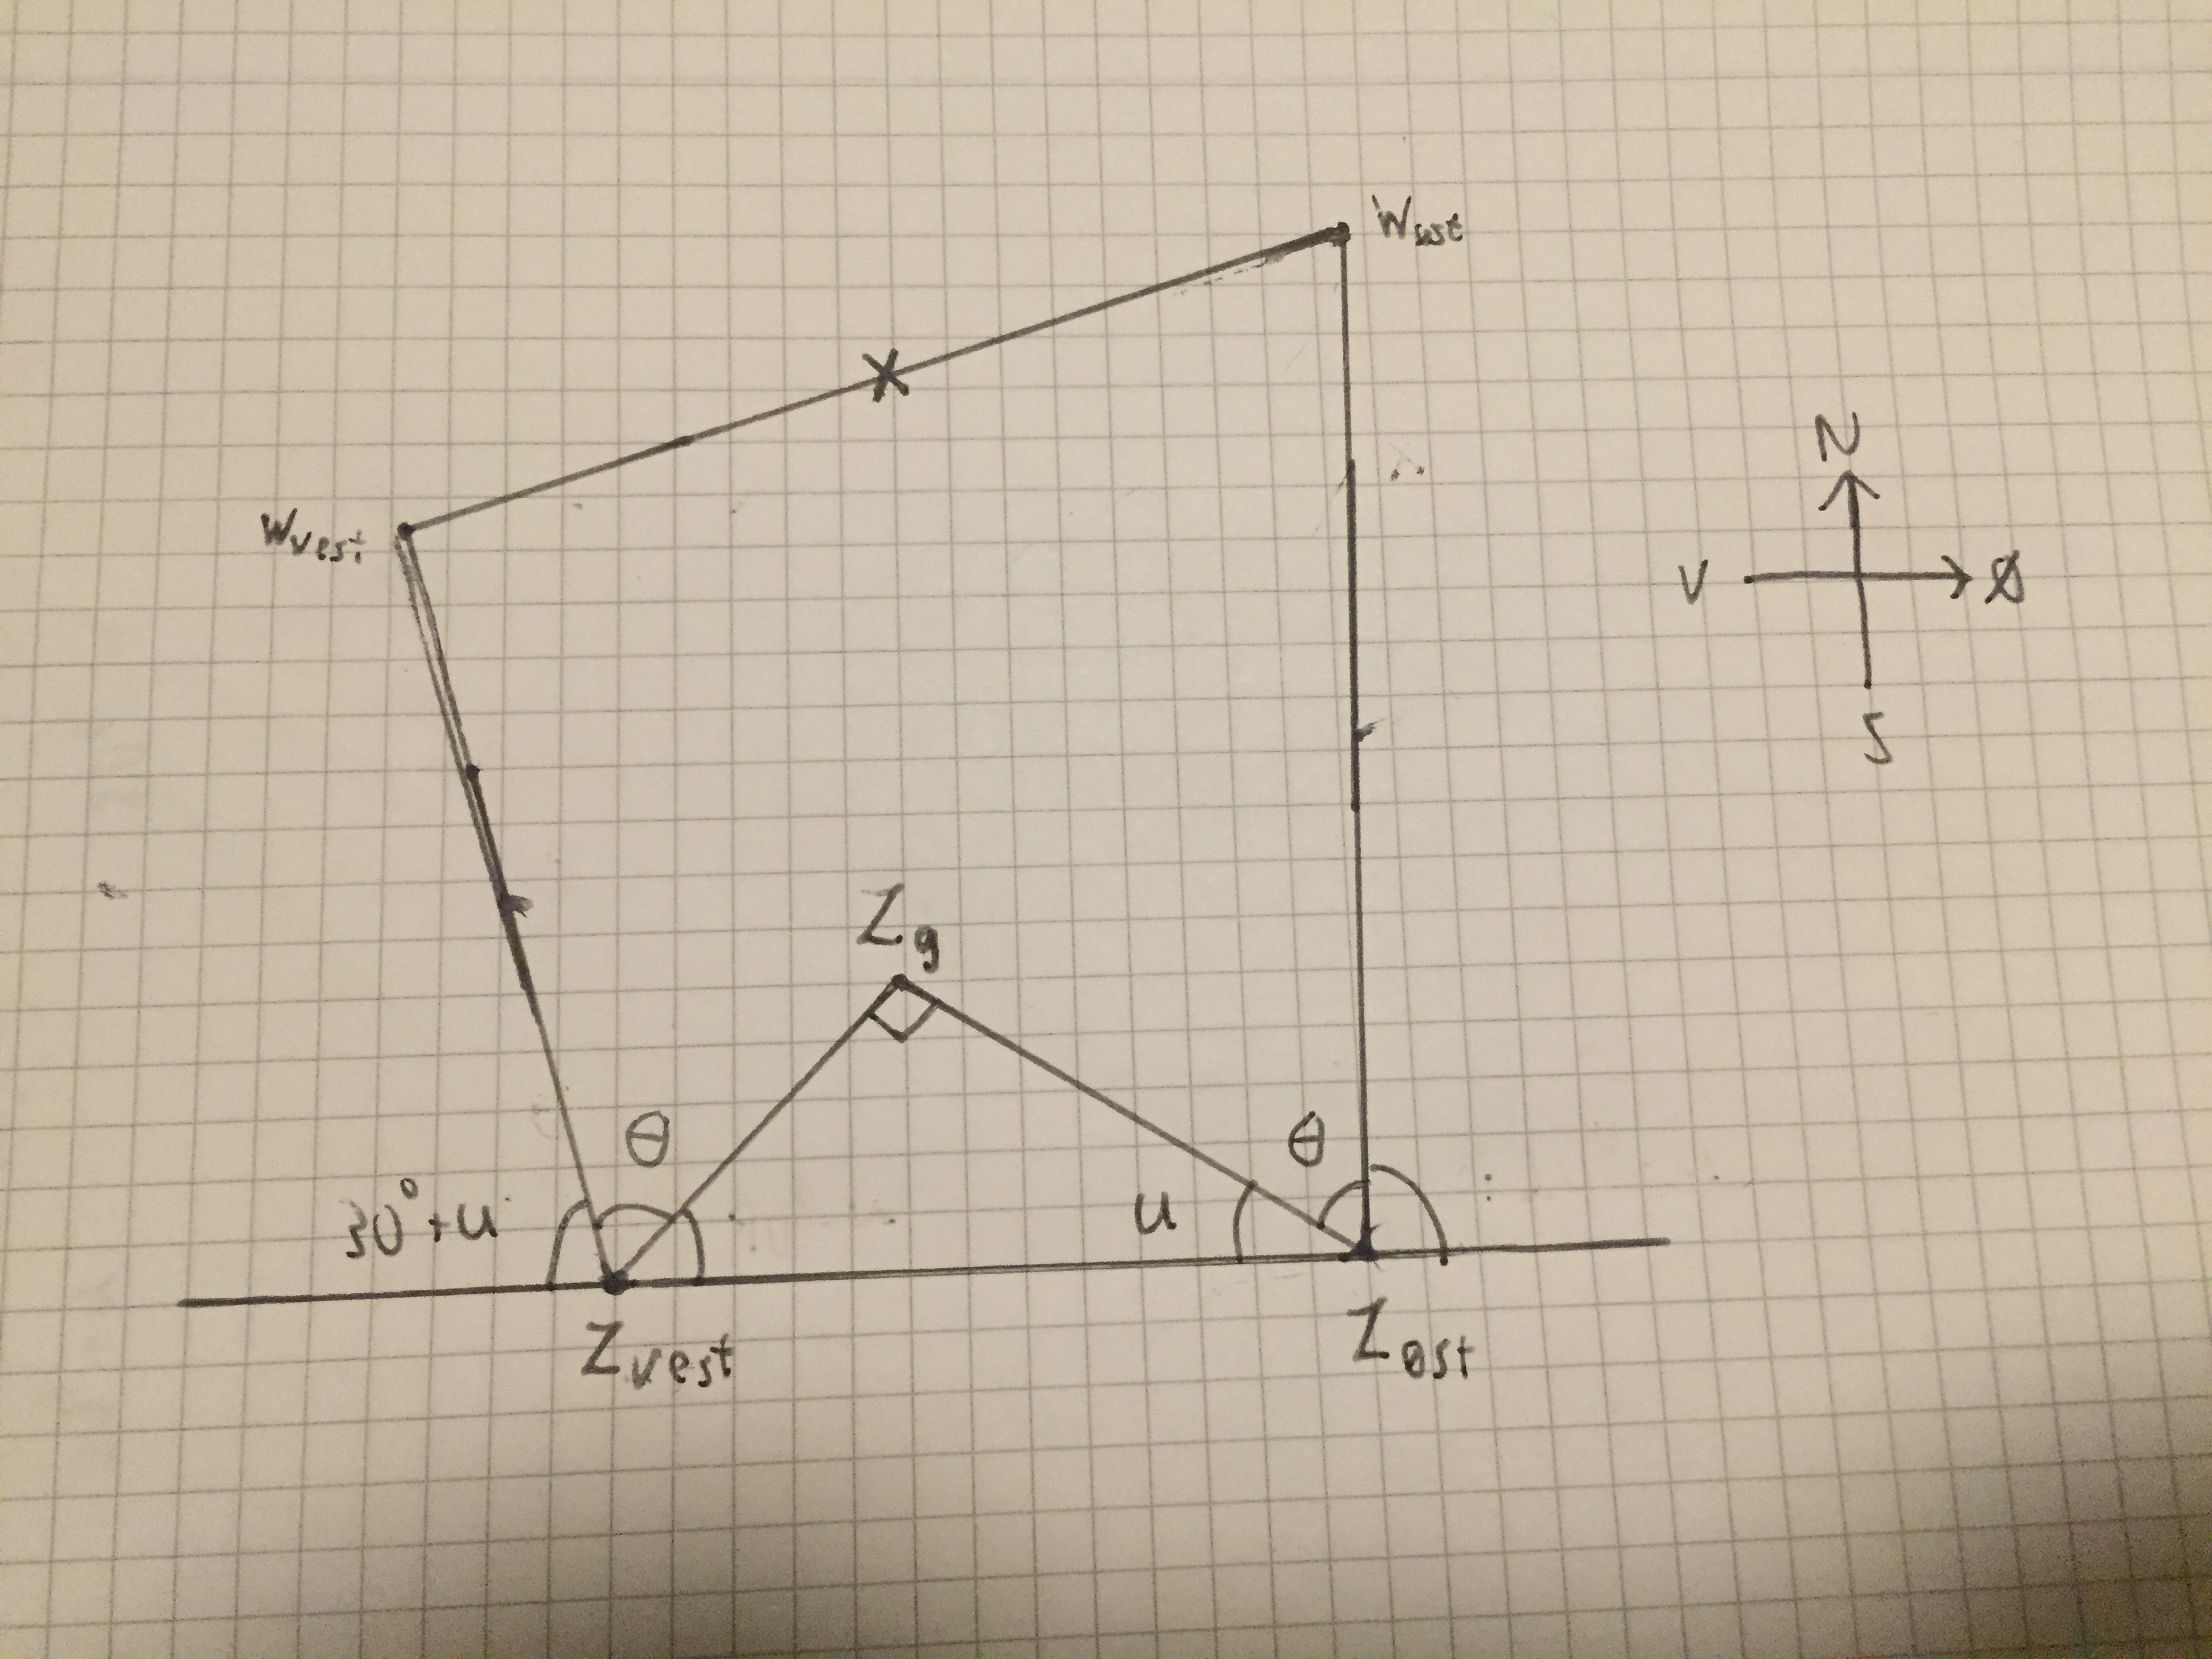 Wøst
X
Wvest
N
V
Ø
S
Zg
θ
θ
30°+u
u
Zvest
Zøst